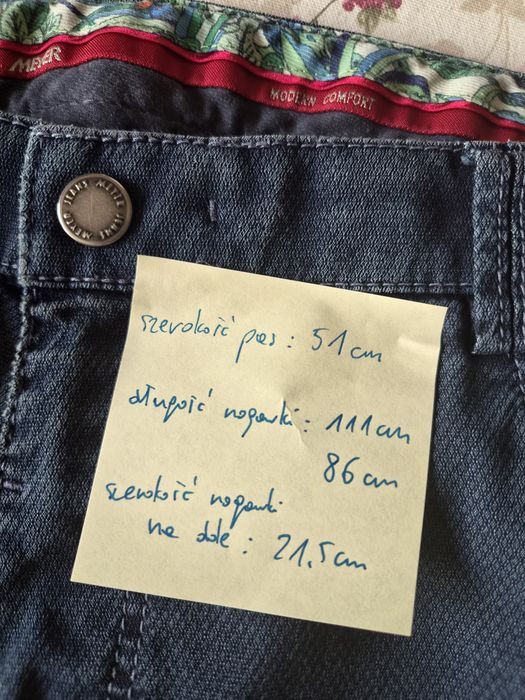 MEYER
MODERN COMFORT
MEYER JEANS MEYER JEANS
szerokość pas : 51 cm
długość nogawki : 111 cm
86 cm
szerokość nogawki
na dole : 21,5 cm